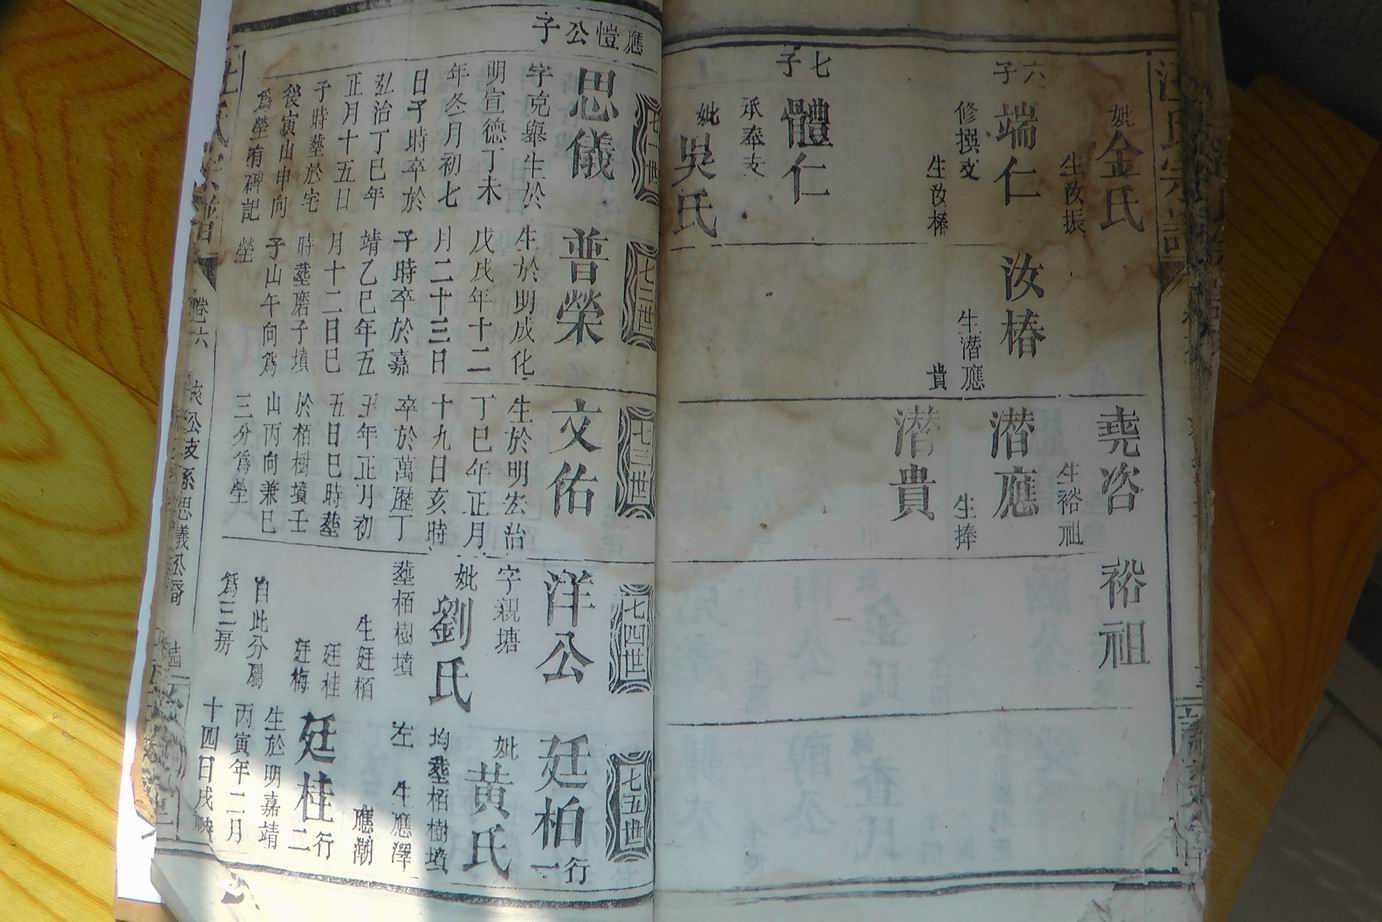 妣金氏
生汝振
六子
端仁
修撰支
生汝椿
七子
體仁
承奉支
妣吳氏
汝椿
生潛應
貴
堯咨
生裕祖
潛應
生捧
潛貴
裕祖
應愷公子
七一世
思儀
字克舉生於
明宣德丁未
年冬月初七
日子時卒於
弘治丁巳年
正月十五日
子時塟於宅
後寅山申向
為塋有碑記
七二世
普榮
生於明成化
戊戌年十二
月二十三日
子時卒於嘉
靖乙巳年五
月十二日巳
時塟磨子墳
子山午向為
塋
七三世
文佑
生於明宏治
丁巳年正月
十九日亥時
卒於萬歷丁
丑年正月初
五日巳時塟
於栢樹墳壬
山丙向兼巳
三分為塋
七四世
洋公
字親塘
妣劉氏
塟栢樹墳
生廷栢
廷桂
廷梅
自此分屬
為三房
七五世
廷柏行一
妣黃氏
均塟栢樹墳
左 生應澤
應潮
廷桂行二
生於明嘉靖
丙寅年二月
十四日戌時
卷六